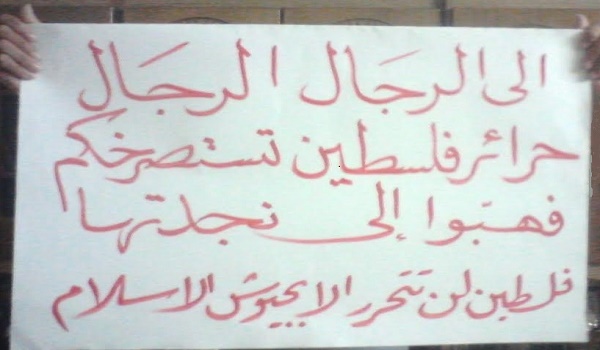 الى الرجال الرجال
حرائر فلسطين تستصرخكم
فهبوا إلى نجدتها
فلسطين لن تتحرر الا بجيوش الاسلام